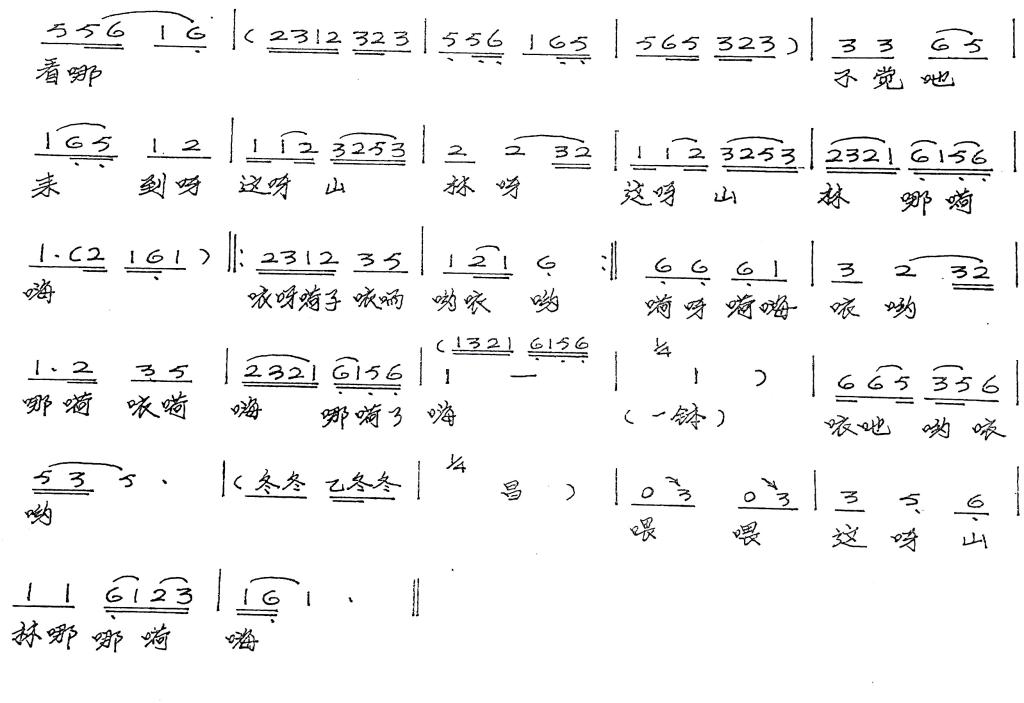 5 5 6 1 6 | ( 2312 323 | 556 165 | 565 323 ) | 3 3 6 5 |
看哪 不 觉 吔
1 6 5 1 2 | 1 1 2 3253 | 2 2 32 | 1 1 2 3253 | 2321 6156 |
来 到呀 这呀 山 林 呀 这呀 山 林 哪 嗬
1·(2 161 ) ‖: 2312 35 | 1 2 1 6 :‖ 6 6 6 1 | 3 2 32 |
嗨 咳呀嗬子 咳哂 哟咳 哟 嗬呀 嗬嗨 咳 哟
(1321 6156 1/4
1·2 35 | 2321 6156 | 1 — | 1 ) | 6 6 5 3 5 6 |
哪嗬 咳嗬 嗨 哪嗬了 嗨 (一钵) 咳吔 哟 咳
5 3 5 · | (冬冬 乙冬冬 | 1/4 昌 ) | 0 3 0 3 | 3 5 6 |
哟 喂 喂 这 呀 山
1 1 6123 | 1 6 1 · ‖
林哪 哪 嗬 嗨